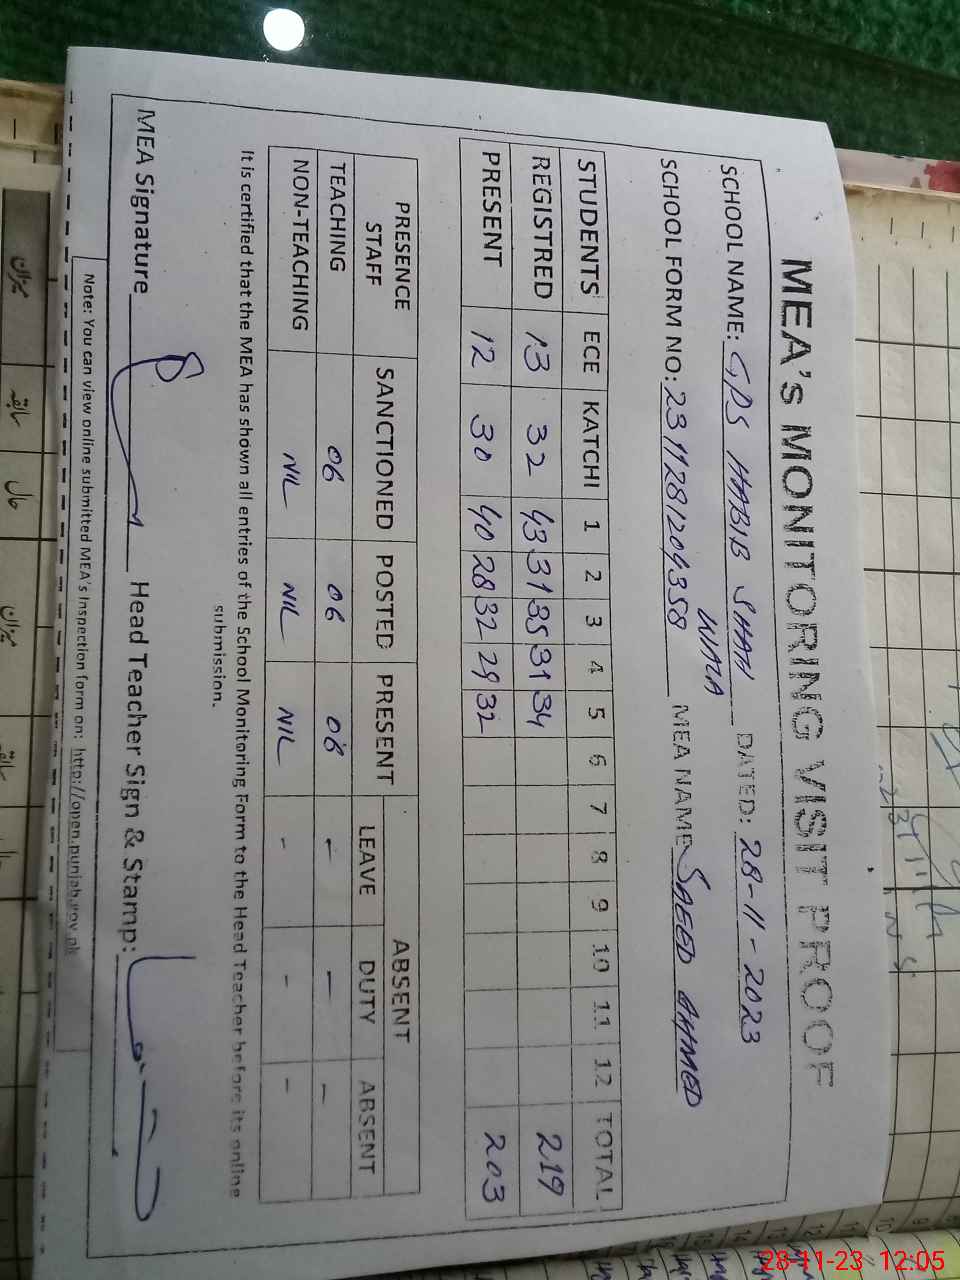 MEA's MONITORING VISIT PROOF
SCHOOL NAME: GPS HABIB SHAH DATED: 28-11-2023
SCHOOL FORM NO: 2311281209358 MEA NAME SAEED AHMED
STUDENTS ECE KATCHI 1 2 3 4 5 6 7 8 9 10 11 12 TOTAL
REGISTRED 13 32 43 31 35 31 34 219
PRESENT 12 30 40 28 32 29 32 203
PRESENCE STAFF SANCTIONED POSTED PRESENT ABSENT
LEAVE DUTY ABSENT
TEACHING 06 06 06 - - -
NON-TEACHING NIL NIL NIL - - -
It is certified that the MEA has shown all entries of the School Monitoring Form to the Head Teacher before its online
submission.
MEA Signature Head Teacher Sign & Stamp:
Note: You can view online submitted MEA's Inspection form on: http://open.punjab.gov.pk
میزان
سابقہ
حال
میزان
28-11-23 12:05